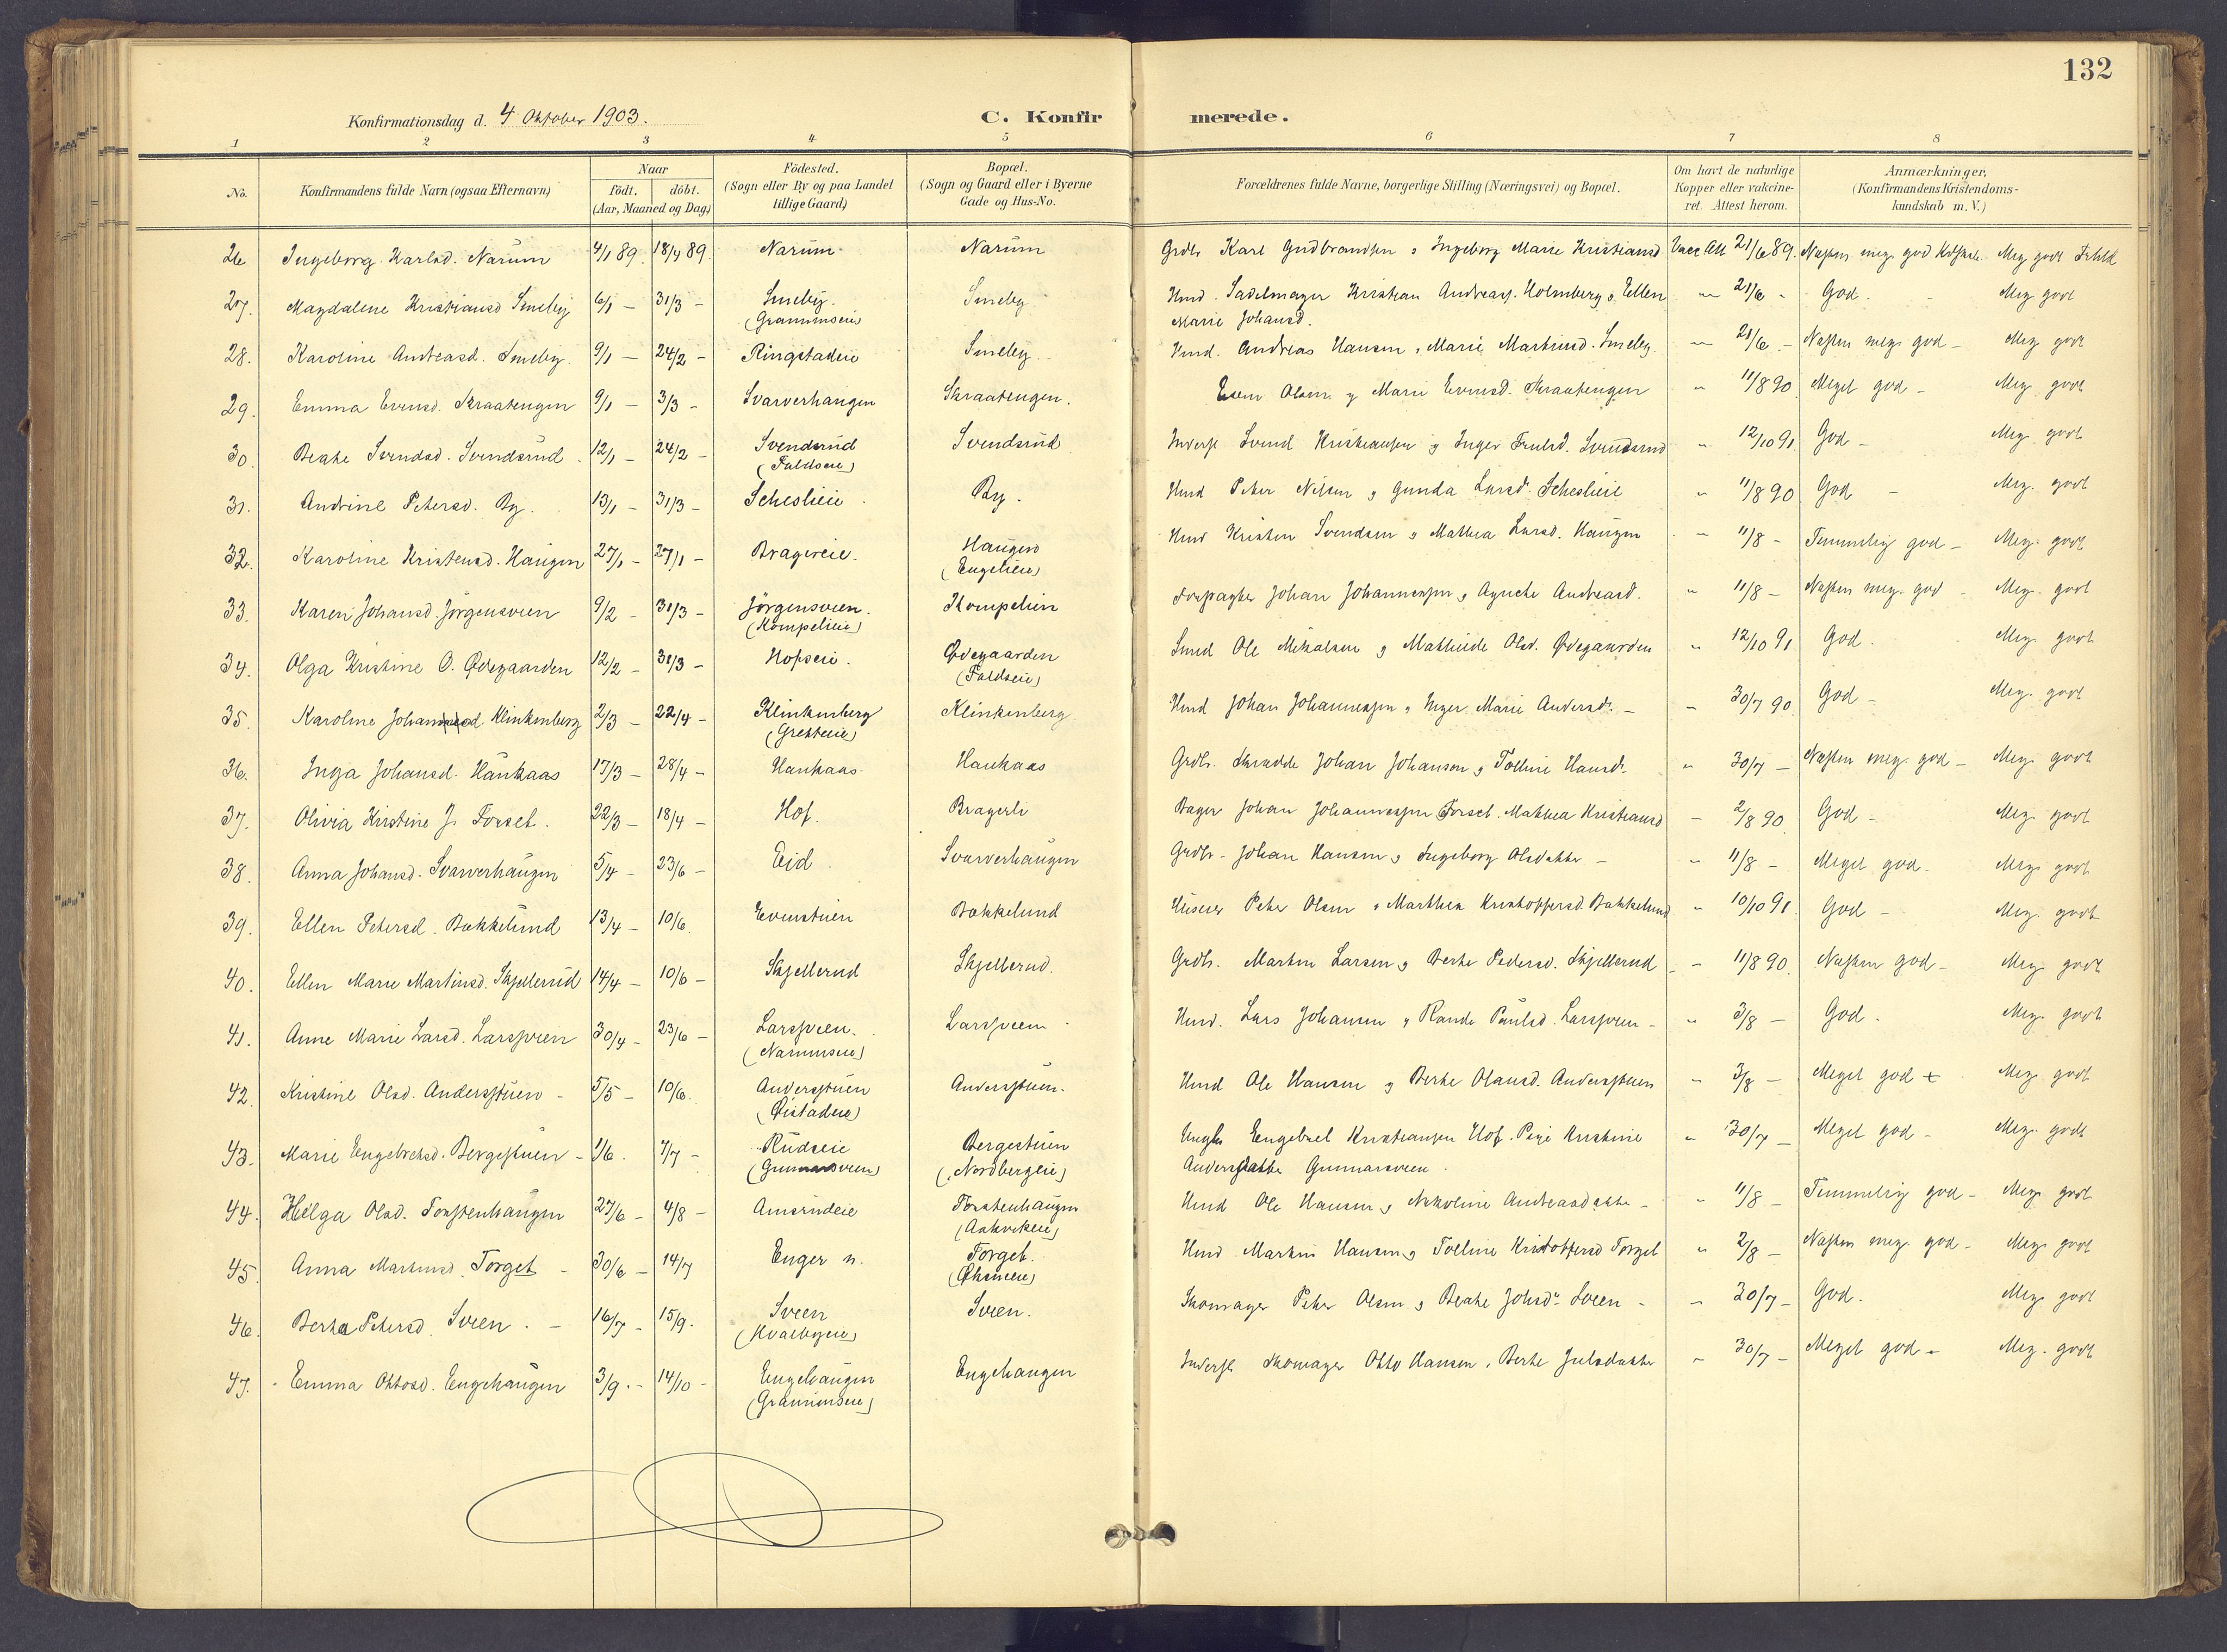 132
Konfirmationsdag d. 4 Oktober 1903.
C. Konfirmerede.
1 2 3 4 5 6 7 8
No.
Konfirmandens fulde Navn (ogsaa Efternavn)
Naar
födt. döbt.
(Aar, Maaned og Dag)
Födested.
(Sogn eller By og paa Landet
tillige Gaard)
Bopæl.
(Sogn og Gaard eller i Byerne
Gade og Hus-No.
Forældrenes fulde Navne, borgerlige Stilling (Næringsvei) og Bopæl.
Om havt de naturlige
Kopper eller vakcine-
ret. Attest herom.
Anmærkninger,
(Konfirmandens Kristendoms-
kundskab m. V.)
26 Ingeborg Karlsd. Narum 4/1 89. 18/4 89. Narum Narum Grdbr. Karl Gudbrandsen & Ingeborg Marie Kristiansd Vacc Att 21/6 89. Næsten meg. god Meg godt
27. Magdalene Kristiansd Smeby 6/1 – 31/3 – Smeby. Smeby Hmd. Sadelmager Kristian Andreass. Holmberg & Ellen " 21/6 - God. Meg godt
(Grammseie) Marie Johansd.
28. Karoline Andreasd. Smeby. 9/1 – 24/2 – Ringstadeie Smeby Hmd. Andreas Hansen & Marie Martinsd. Smeby " 21/6 - Næsten meg. god – Meg godt
29. Emma Evensd. Skraatengen 9/1 – 3/3 – Svarverhaugen Skraatengen. Even Olsen & Marie Evensd. Skraatengen " 11/8 90 Meget god – Meg. godt
30. Beate Svendsd. Svendsrud 12/1 – 24/2 – Svendsrud Svendsrud Inderst Svend Kristiansen & Inger Svendsrud " 12/10 91. God – Meg godt
(Faldseie)
31. Andrine Petersd. By. 13/1 – 31/3 – By. Hmd Peter Nilsen & Gunda Larsd. " 11/8 90 God – Meg. godt
32. Karoline Kristensd. Haugen 27/1 – 27/1 – Haugen Hmd Kristen Svendsen & Mathea Larsd. Haugen " 11/8 – Temmelig god – Meg. godt
(Engelieie)
33. Karen Johansd. Jörgensveen 9/2 – 31/3 – Jörgensveen. Kompelien Forpagter Johan Johannessen & Agnete Andreasd. " 11/8 – Næsten meg. god – Meg. godt
(Kompelieie)
34. Olga Kristine O. Ødegaarden 12/2 – 31/3 – Hofseie. Ødegaarden Smed Ole Mikalsen & Mathilde Olsd. Ødegaarden " 12/10 91 God. Meg. godt
(Faldseie)
35. Karoline Johansd. Klinkenberg 2/3 – 22/4 – Klinkenberg Klinkenberg Hmd Johan Johannessen & Inger Marie Andersd. – " 30/7 90. God – Meg. godt
36. Inga Johansd. Haukaas 17/3 – 28/4 – Haukaas Haukaas Grdbr. Skrædder Johan Johansen & Tolline Hansd. " 30/7 – Næsten meg. god – Meg. godt
37. Olivia Kristine J. Forset. 22/3 – 18/4 – Hof. Bragerli Bager Johan Johannessen Forset. Mathea Kristiansd – 2/8 90. God – Meg. godt
38. Anna Johansd. Svarverhaugen 5/4 – 23/6 – Eid. Svarverhaugen Grdbr. Johan Hansen & Ingeborg Olsdatter – " 11/8 – Meget god – Meg. godt
39. Ellen Petersd. Bakkelund 13/4 – 10/6. Evenstuen Bakkelund Peter Olsen & Marthea Kristoffersd. Bakkelund " 10/10 91. God – Meg. godt
40. Ellen Marie Martinsd. Skjellerud 14/4 – 10/6 – Skjellerud Skjellerud. Grdbr. Martin Larsen & Berte Pedersd. Skjellerud – 11/8 90. Næsten god – Meg. godt
41. Anne Marie Larsd. Larsveen 30/4 – 23/6 – Larsveen. Larsveen Hmd. Lars Johansen & Randi Paulsd. Larsveen – " 3/8 – God – Meg. godt
(Narumseie)
42. Kristine Olsd. Andersstuen – 5/5 – 10/6. Andersstuen Andersstuen. Hmd Ole Hansen & Berte Olausd. Andersstuen " 3/8 – Meget god + Meg. godt
43. Marie Engebretsd. Bergestuen – 1/6. 7/7 – Rudseie Bergestuen Ungk. Engebret Kristiansen Hof. Pige Kristine " 30/7 – Meget god – Meg. godt
(Gunnarsveen) (Nordbergeie) Andersdatter Gunnarsveen.
44. Helga Olsd. Torstenhaugen 27/6 – 4/8 – Amsrudeie Torstenhaugen Hmd Ole Hansen & Nikoline Andreasdatter – " 11/8 – Temmelig god – Meg. godt
45. Anna Martinsd. Torget – 30/6 – 14/7 Enger n. Torget. Hmd Martin Hansen & Tolline Kristoffersd Torget " 2/8 – Næsten meg. god – Meg. godt
46. Berta Petersd. Sveen. – 16/7 – 15/9. Sveen Sveen. Skomager Peter Olsen & Beate Johsdr. Sveen – " 30/7 – God. Meg. godt
(Kvalbyeie)
47. Emma Ottosd. Engehaugen 3/9. – 14/10 – Engehaugen Engehaugen Inderst Skomager Otto Hansen & Berte Julsdatter " 30/7 – Meget god – Meg. godt
(Grammseie)